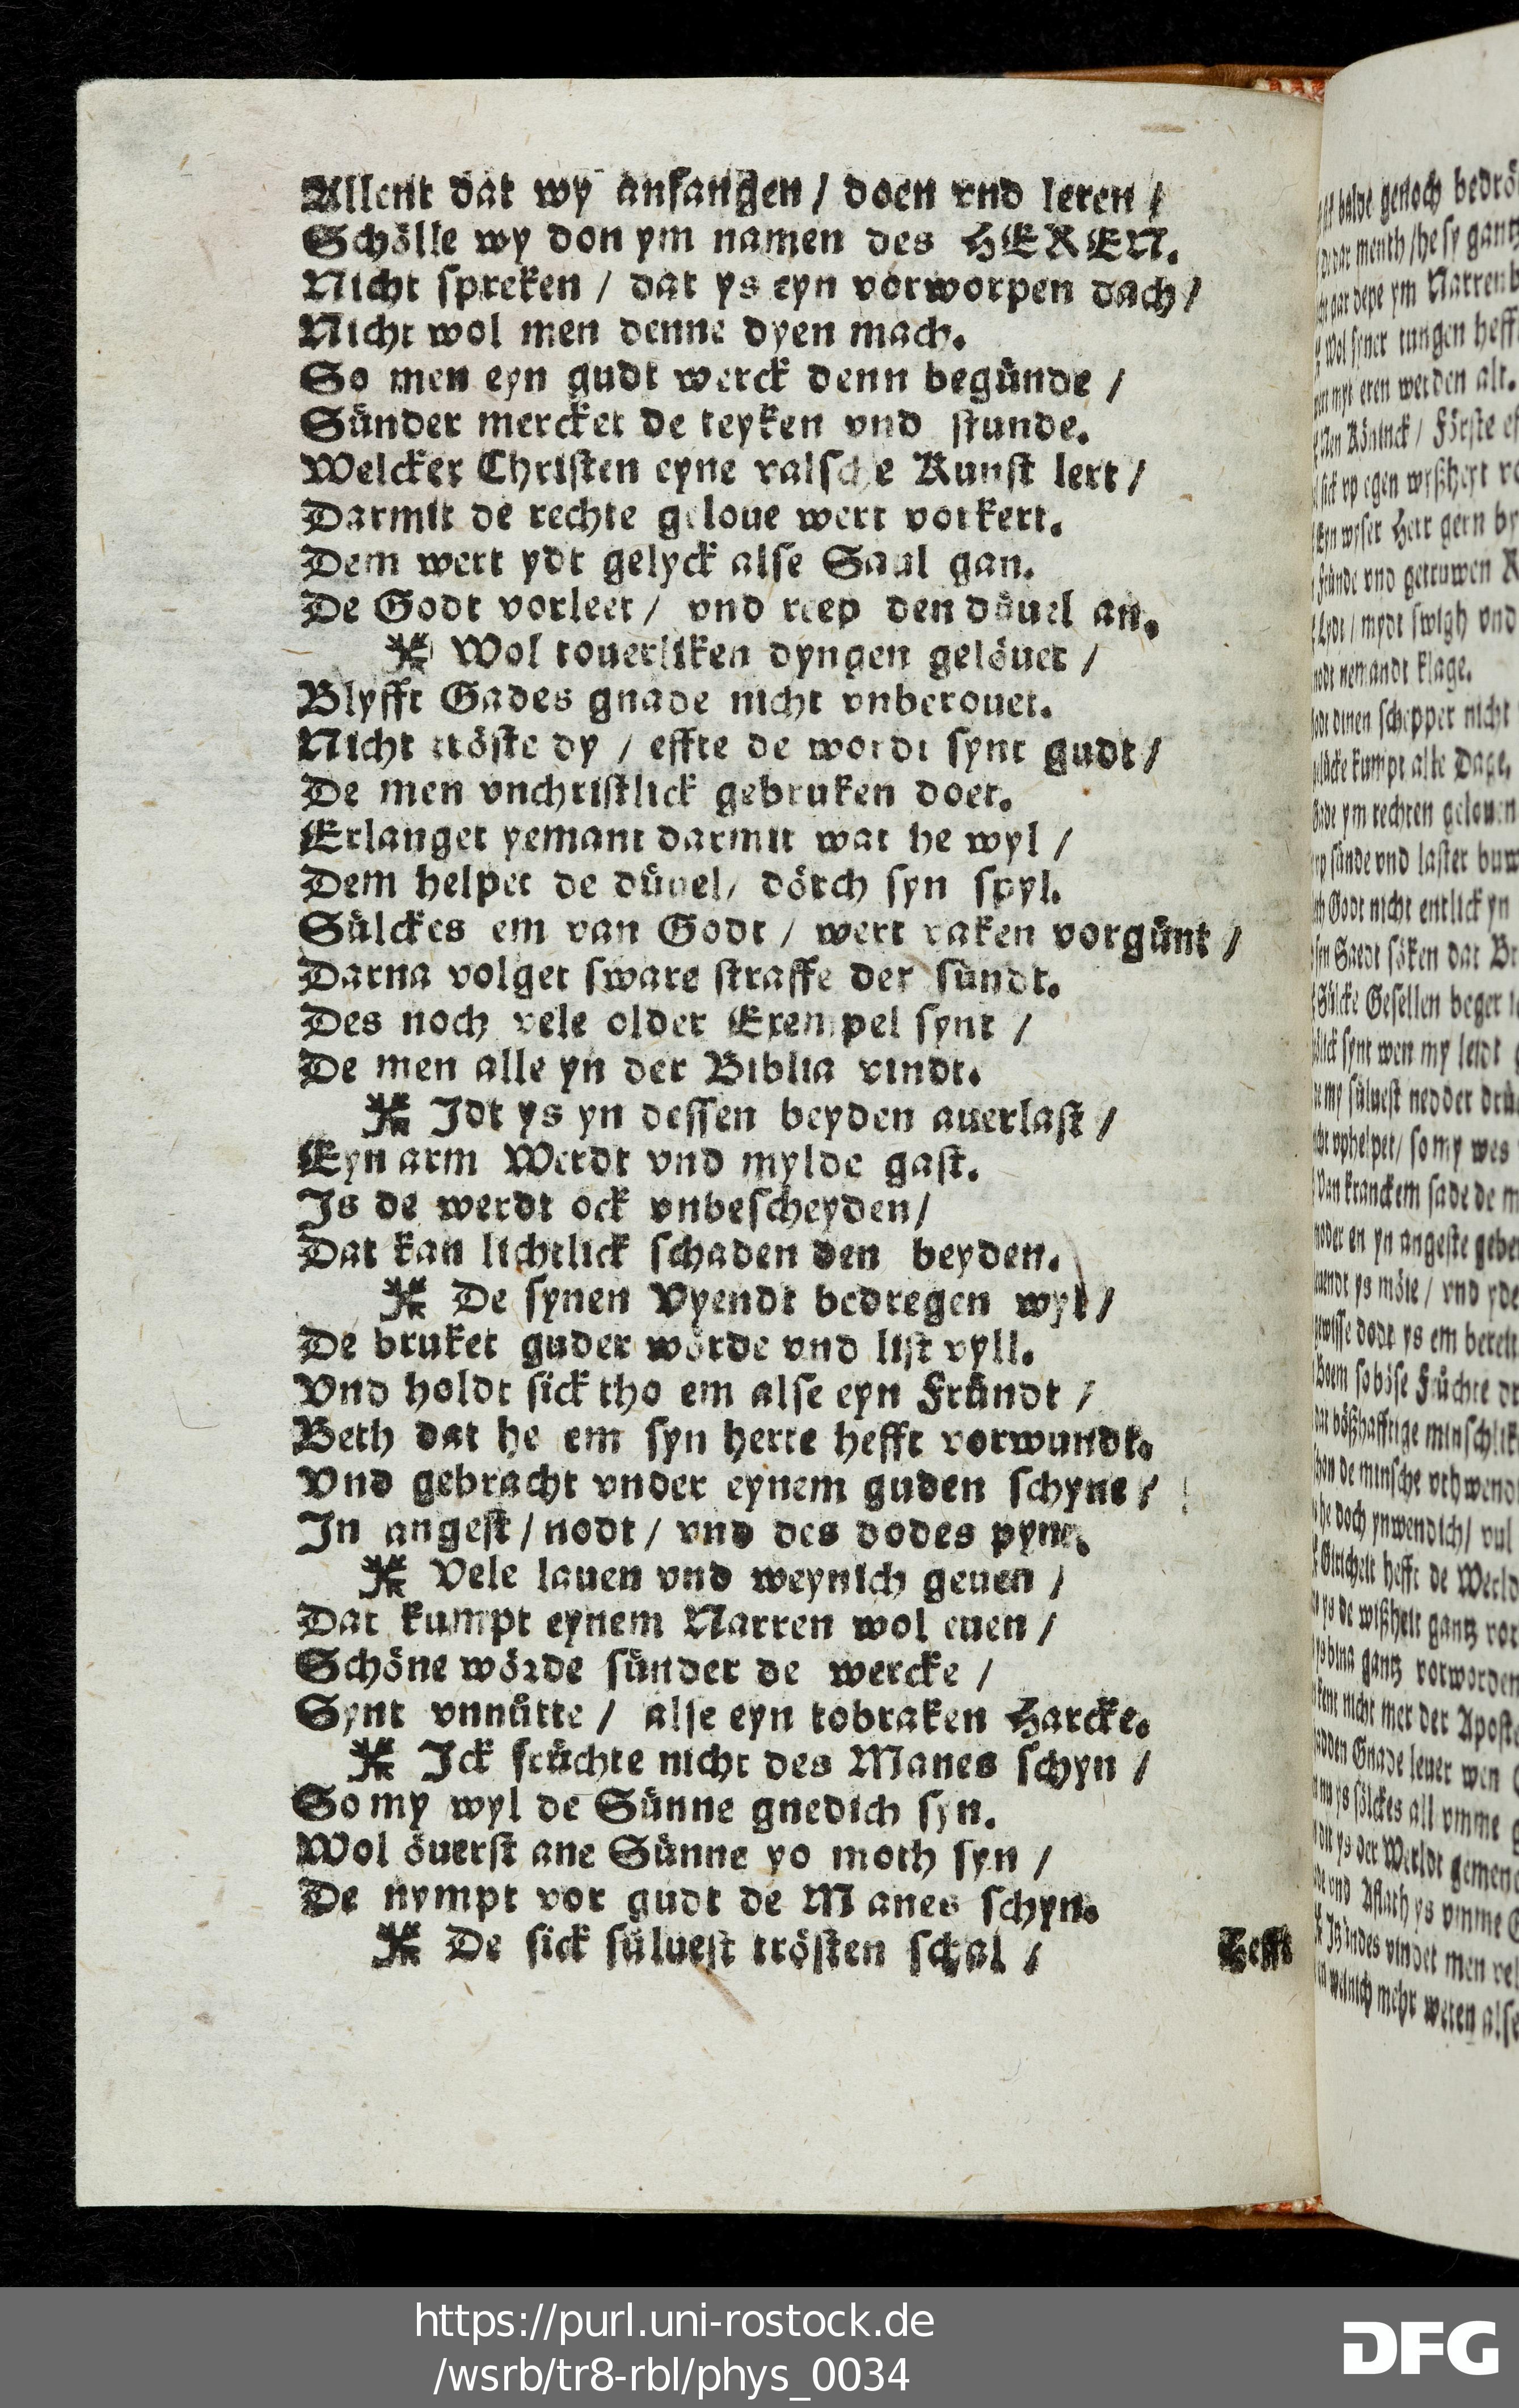 Allent dat wy anfangen / doen vnd leren /
Schölle wy don ym namen des HEREN.
Nicht spreken / dat ys eyn vorworpen dach /
Nicht wol men denne dyen mach.
So men eyn gudt werck denn begünde /
Sünder mercket de teyken vnd stunde.
Welcker Christen eyne valsche Kunst lert /
Darmit de rechte geloue wert vorkert.
Dem wert ydt gelyck alse Saul gan.
De Godt vorleet / vnd reep den düuel an.
⁕ Wol touerliken dyngen gelöuet /
Blyfft Gades gnade nicht vnberouet.
Nicht tröste dy / effte de wordt synt gudt /
De men vnchristlick gebruken doet.
Erlanget yemant darmit wat he wyl /
Dem helpet de düuel / dörch syn spyl.
Sülckes em van Godt / wert vaken vorgünt /
Darna volget sware straffe der sündt.
Des noch vele older Exempel synt /
De men alle yn der Biblia vindt.
⁕ Idt ys yn dessen beyden auerlast /
Eyn arm Werdt vnd mylde gast.
Is de werdt ock vnbescheyden /
Dat kan lichtlick schaden den beyden.
⁕ De synen Vyendt bedregen wyl /
De bruket guder wörde vnd list vyll.
Vnd holdt sick tho em alse eyn Fründt /
Beth dat he em syn herte hefft vorwundt.
Vnd gebracht vnder eynem guden schyne /
In angest / nodt / vnd des dodes pyne.
⁕ Vele lauen vnd weynich geuen /
Dat kumpt eynem Narren wol euen /
Schöne wörde sünder de wercke /
Synt vnnütte / alse eyn tobraken Harcke.
⁕ Ick früchte nicht des Manes schyn /
So my wyl de Sünne gnedich syn.
Wol öuerst ane Sünne yo moth syn /
De nympt vor gudt de Manes schyn.
⁕ De sick süluest trösten schal /
Hefft
https://purl.uni-rostock.de
/wsrb/tr8-rbl/phys_0034
DFG